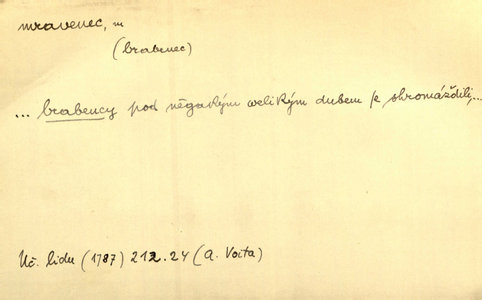 mravenec, m
(brabenec)
... brabency pod něgakým welikým dubem se shromáždili,...
Uč. lidu (1787) 212.24 (A. Voita)